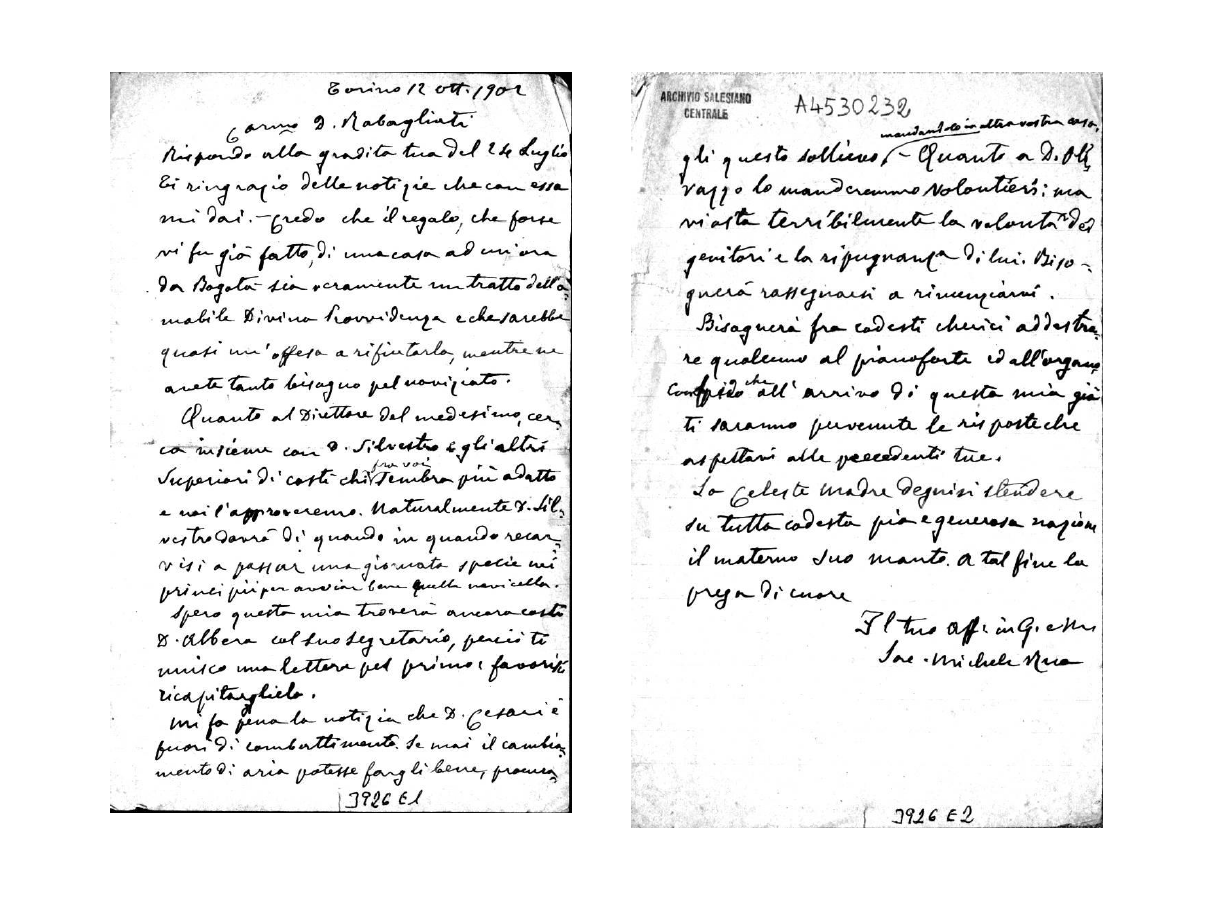 Torino 12 ott. 1902
Carmo D. Rabagliati
Rispondo alla gradita tua del 24 Luglio
Ti ringrazio delle notizie che con essa
mi dai. - Credo che il regalo, che forse
vi fu già fatto, di una casa ad un'ora
da Bogotà sia veramente un tratto dell'a-
mabile Divina Provvidenza e che sarebbe
quasi un'offesa a rifiutarla, mentre ne
avete tanto bisogno pel noviziato.
Quanto al Direttore del medesimo, cer-
ca insieme con D. Silvestro e gli altri
Superiori di costì chi fra voi sembra più adatto
e noi l'approveremo. Naturalmente D. Sil-
vestro dovrà di quando in quando recar-
visi a passar una giornata specie nei
principii per avviar bene quella navicella.
Spero questa mia troverà ancora costì
D. Albera col suo segretario, perciò ti
unisco una lettera pel primo e favorisci
ricapitargliela.
Mi fa pena la notizia che D. Cesari è
fuori di combattimento. Se mai il cambia-
mento di aria potesse fargli bene, procura-
J926 E1
ARCHIVIO SALESIANO
CENTRALE
A4530232
mandandolo in altra vostra casa.
gli questo sollievo, - Quanto a D. Oli
vazzo lo manderemmo volontieri: ma
vi osta terribilmente la volontà dei
genitori e la ripugnanza di lui. Biso-
gnerà rassegnarsi a rinunziarvi.
Bisognerà fra codesti chierici addestra-
re qualcuno al pianoforte ed all'organo
Confido che all'arrivo di questa mia già
ti saranno pervenute le risposte che
aspettavi alle precedenti tue.
La Celeste Madre degnisi stendere
su tutta codesta pia e generosa nazione
il materno suo manto. A tal fine la
prega di cuore
Il tuo aff. in G. e M.
Sac. Michele Rua
J926 E2